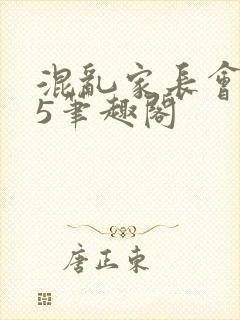 混亂家長會
5筆趣閣
唐正東